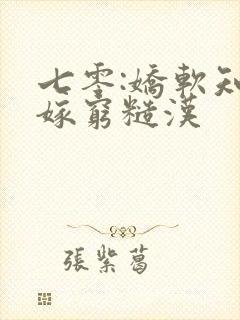 七零:嬌軟知
嫁窮糙漢
張紫葛